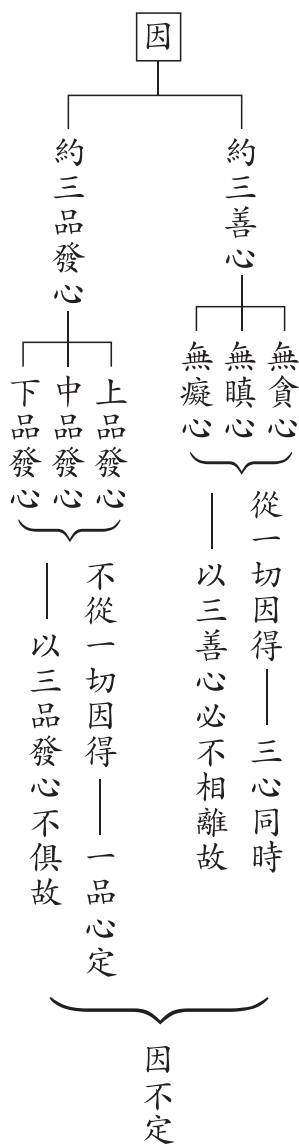 因
約三善心
無貪心
無瞋心
無癡心
從一切因得——三心同時
——以三善心必不相離故
約三品發心
上品發心
中品發心
下品發心
不從一切因得——一品心定
——以三品發心不俱故
因不定